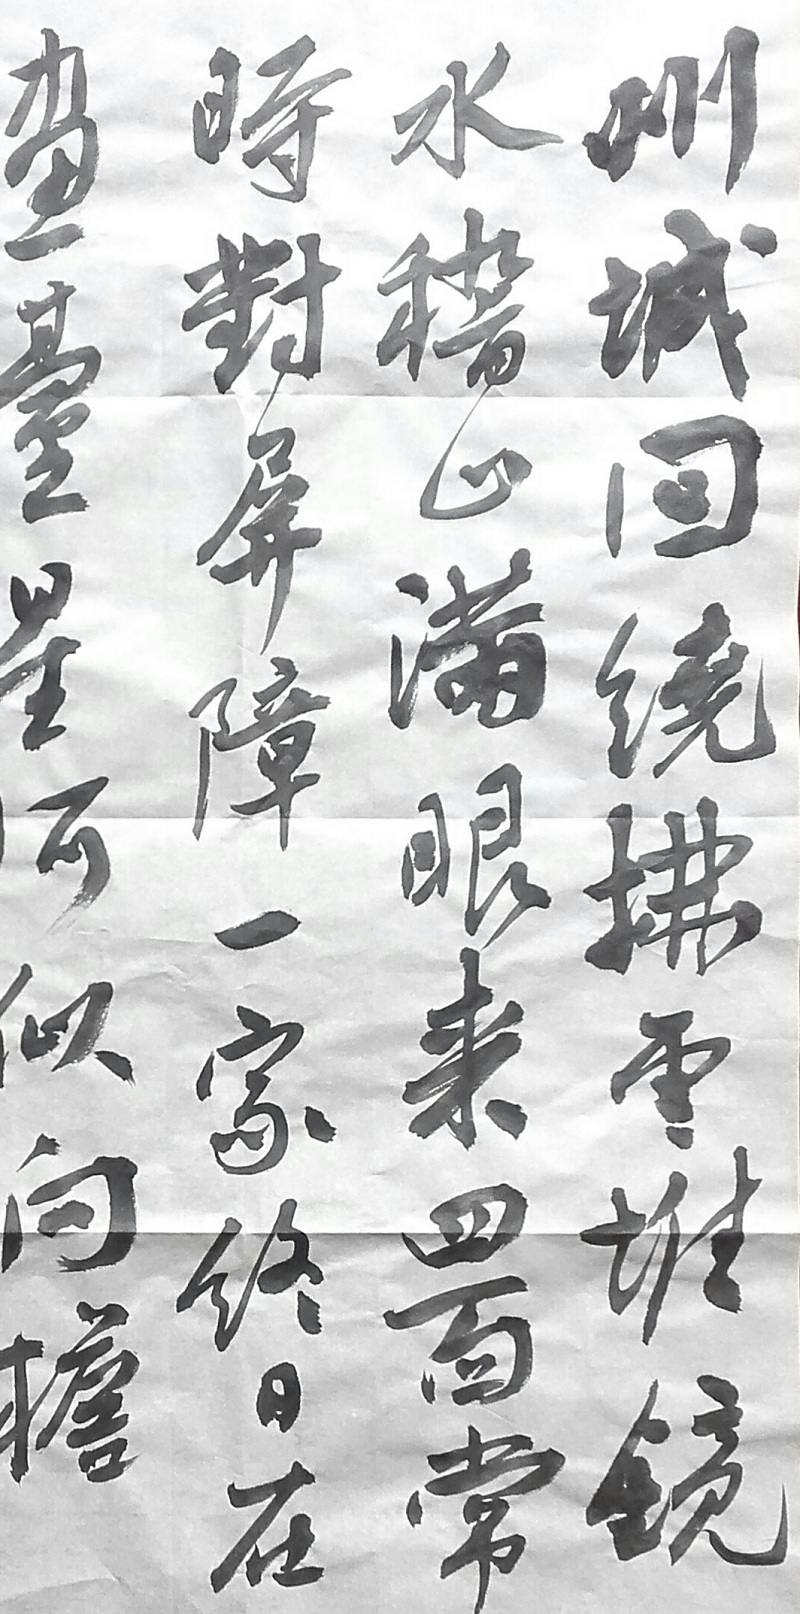 州城回绕拂雲堆鏡
水稽山满眼来四面常
時對屏障一家終日在
樓臺星河似向檐